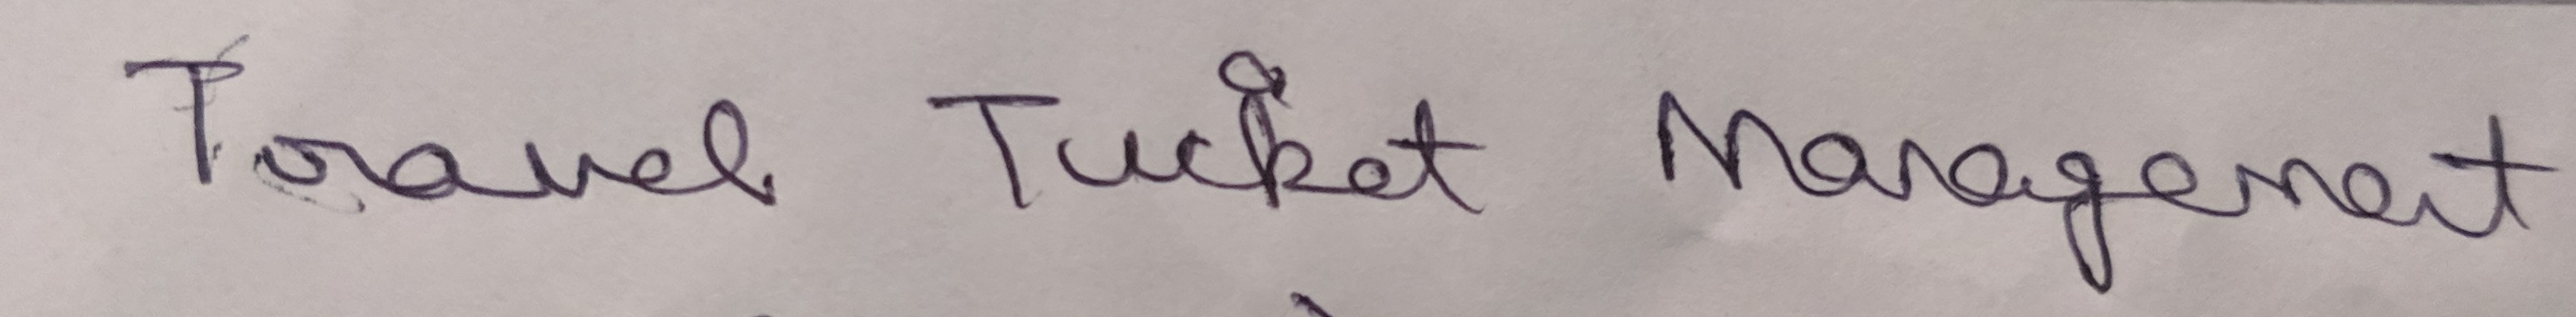 Travel Ticket Management